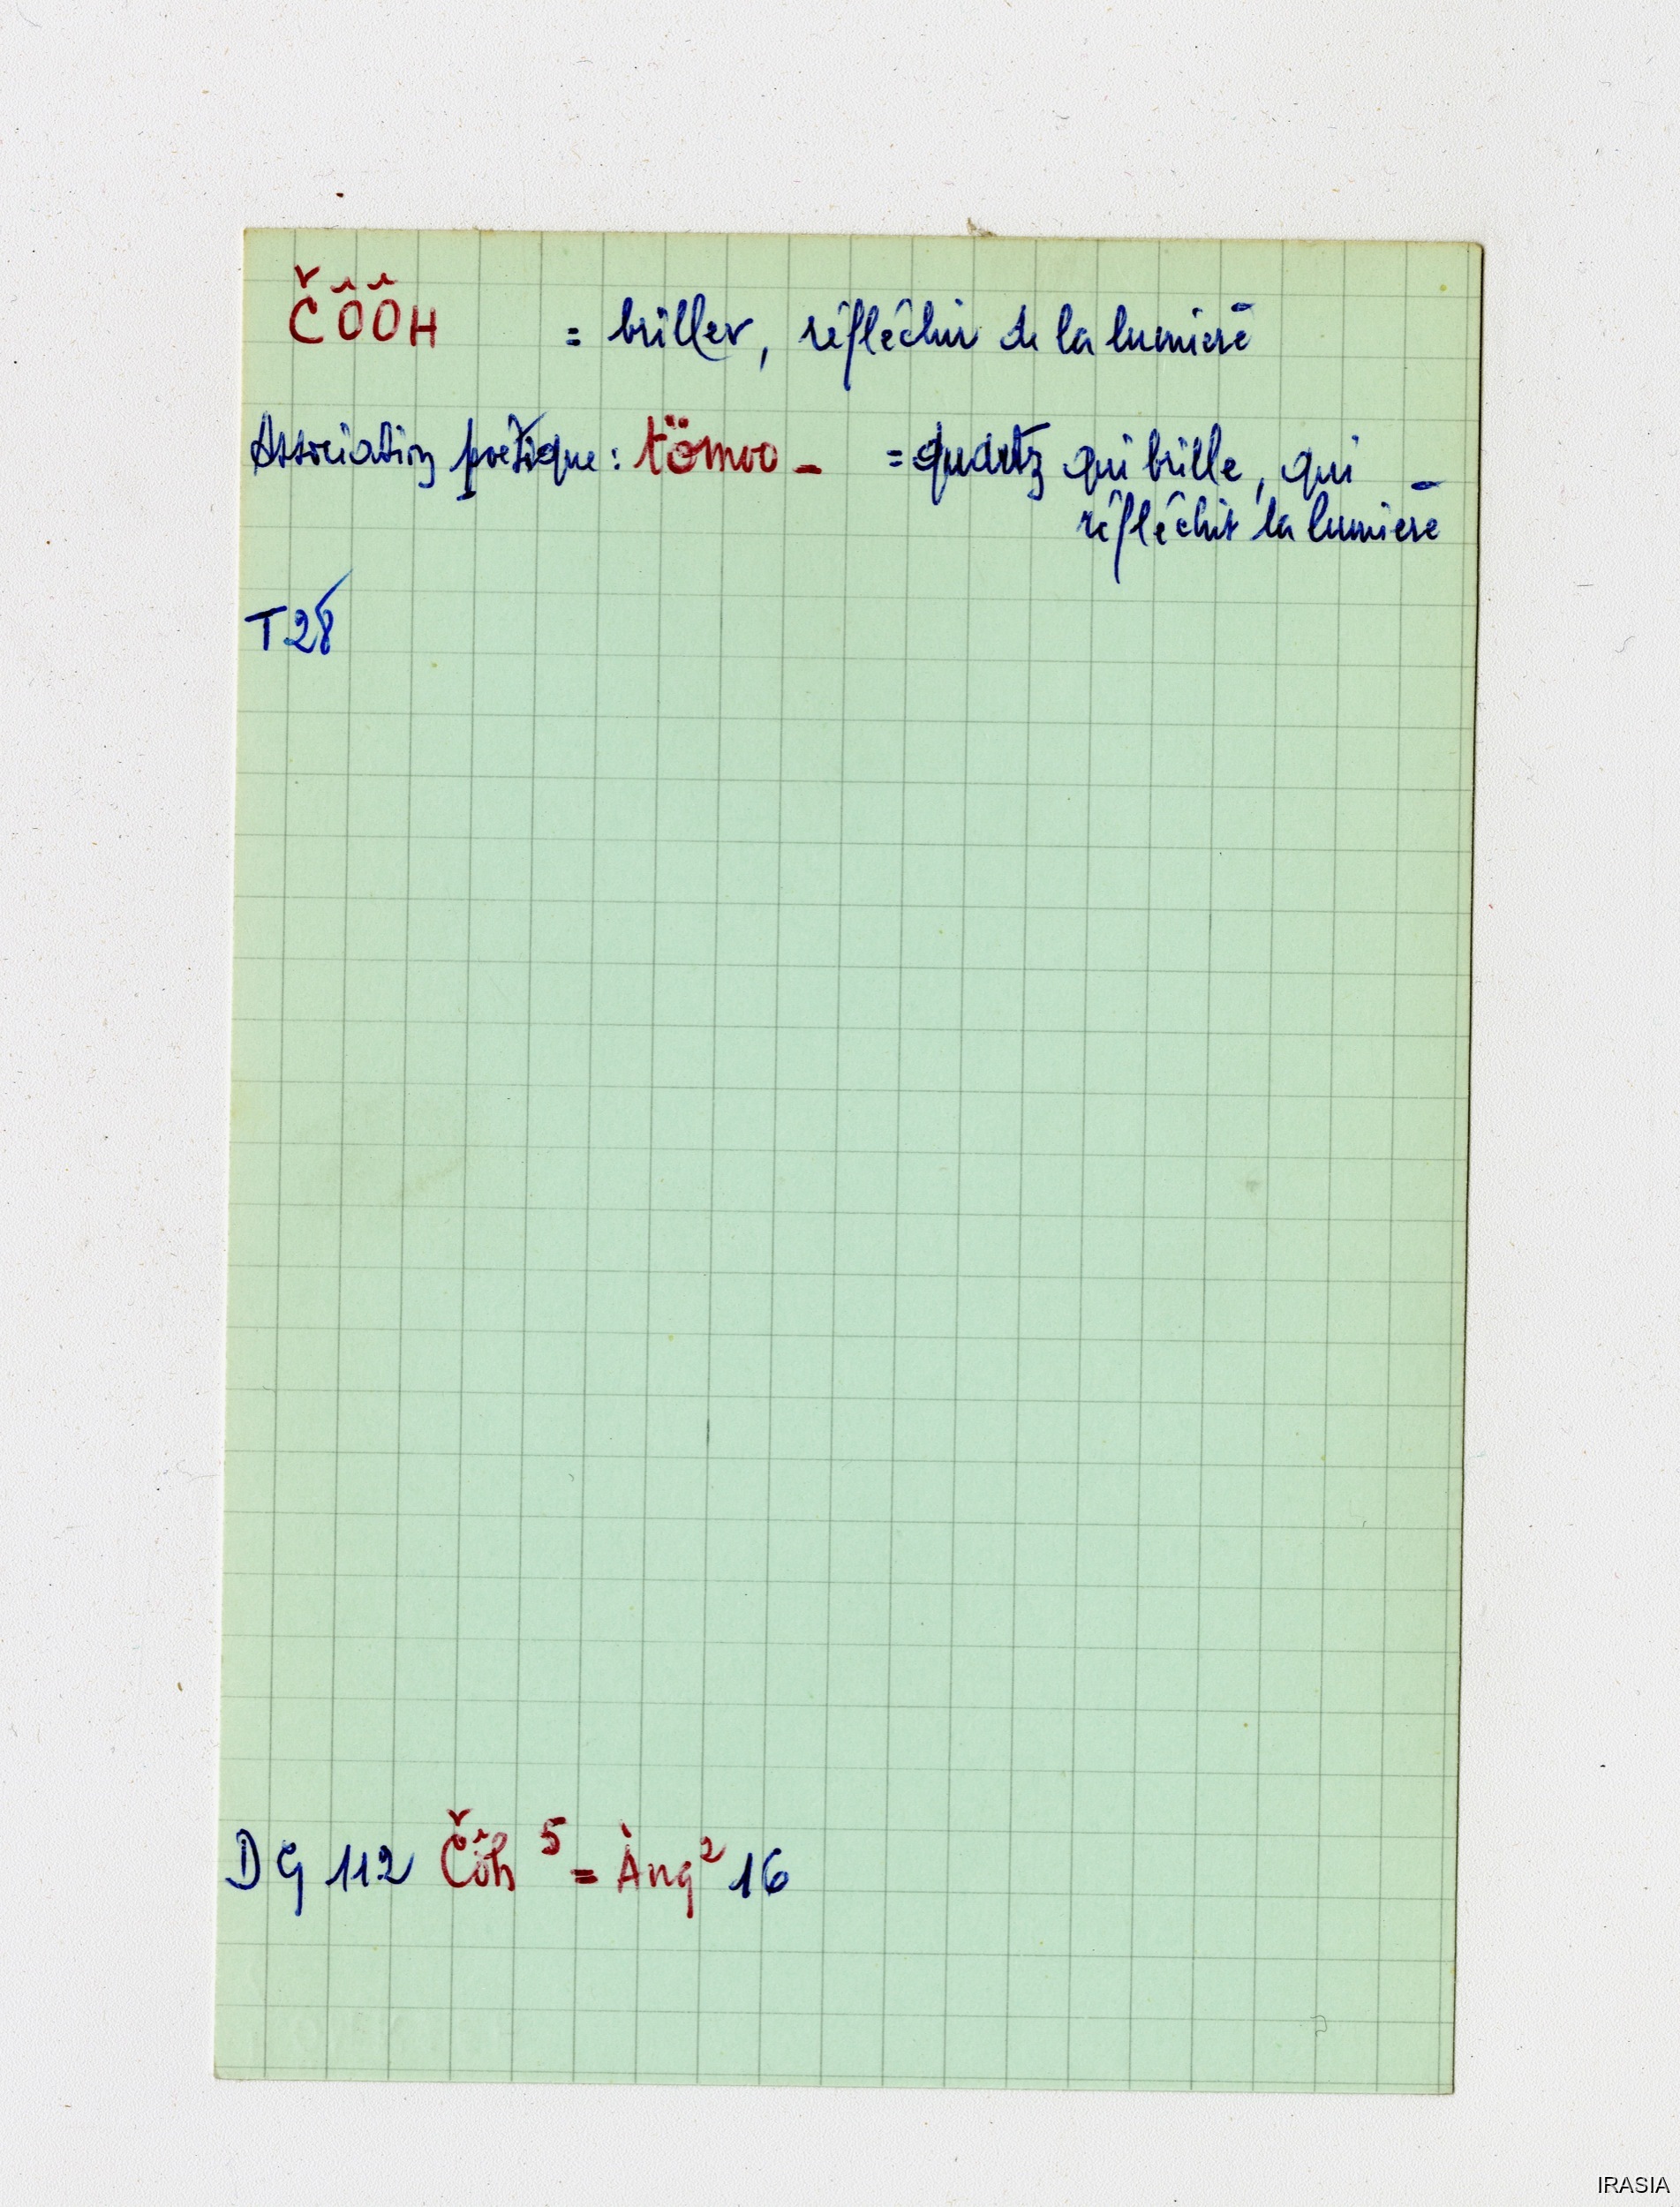 ČÔÔH = briller, réfléchir de la lumière
Association poétique : tömoo _ = quartz qui brille, qui
réfléchit la lumière
T28
DG 112 Čôh 5 = Àng 2 16
IRASIA